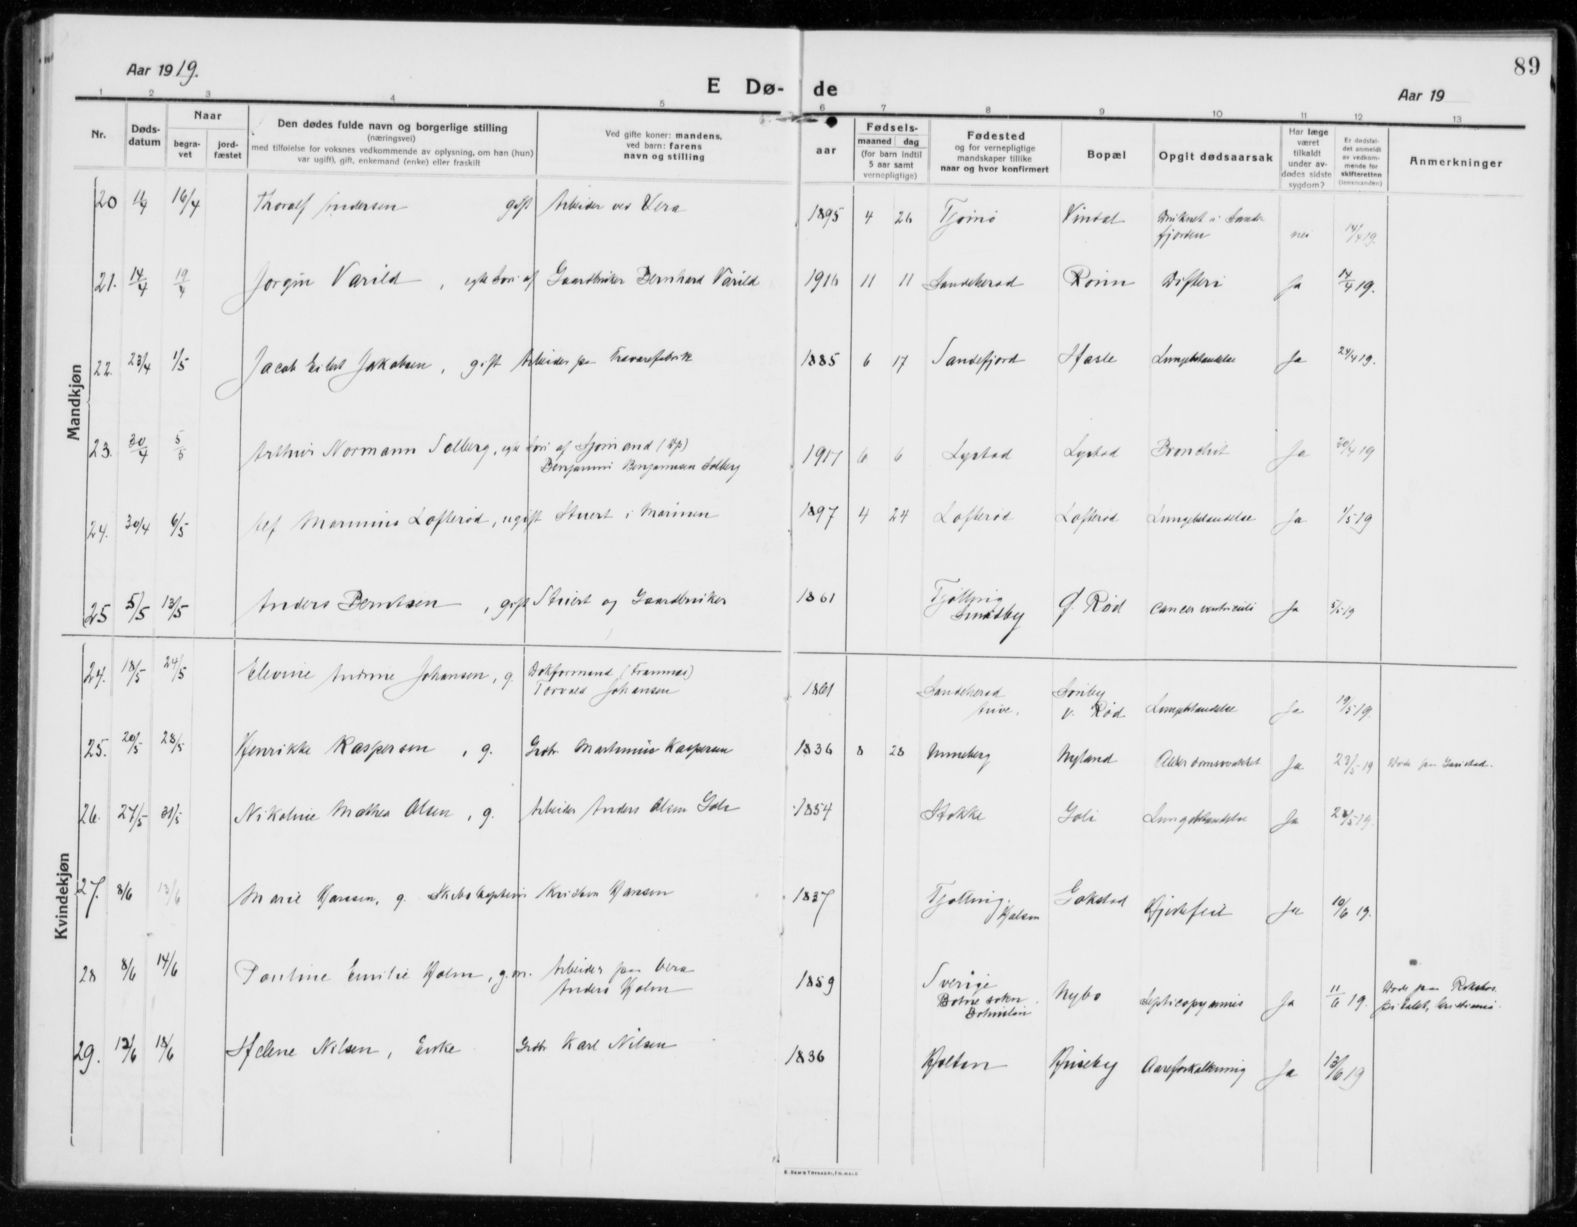 Aar 1919.
E Dø- de
89
Aar 19
1 2 3 4 5 6 7 8 9 10 11 12 13
Nr.
Døds-
datum
Naar
begra-
vet
jord-
fæstet
Den dødes fulde navn og borgerlige stilling
(næringsvei)
med tilføielse for voksnes vedkommende av oplysning, om han (hun)
var ugift, gift, enkemand (enke) eller fraskilt
Ved gifte koner: mandens,
ved barn: farens
navn og stilling
aar
Fødsels-
maaned dag
(for barn indtil
5 aar samt
vernepligtige)
Fødested
og for vernepligtige
mandskaper tillike
naar og hvor konfirmert
Bopæl
Opgit dødsaarsak
Har læge
været
tilkaldt
under av-
dødes sidste
sygdom?
Er dødsfal-
det anmeldt
av vedkom-
mende for
skifteretten
(lensmanden)
Anmerkninger
Mandkjøn
20 16/4 Thoralf Andersen gift Arbeider ved Vera 1895 4 26 Tjømø Vindal Druknet i Sande-
fjorden nei 14/4 19.
21. 14/4 19/4 Jørgen Varild, egte søn af Gaardbruker Bernhard Varild 1916 11 11 Sandeherad Difteri Ja 14/4 19.
22 23/4 1/5 Jacob Eilert Jakobsen, gift Arbeider paa Trævarefabrik 1885 6 17 Sandefjord Hasle Lungebetændelse Ja 24/4 19.
23. 30/4 5/5 Arthur Normann Solberg, egte søn af Sjømand
Benjamin Benjaminsen Solberg 1917 6 6 Lystad Lystad Bronchit Ja 30/4 19
24. 30/4 6/5 Alf Marinius Lofterød, ugift Stuert i Marinen 1897 4 24 Lofterød Lofterød Lungebetændelse Ja 1/5 19
25 5/5 13/5 Anders Berntsen, gift Stuert og Gaardbruker 1861 Tjølling
Sundby Ø. Rød Cancer ventriculi Ja 5/5 19
Kvindekjøn
24. 18/5 24/5 Elevine Andrine Johansen, g. Dokformand (Framnæs)
Torvald Johansen 1861 Sandeherad
v. Rød Lungebetændelse Ja 19/5 19.
25. 20/5 28/5 Henrikke Kaspersen, g. Grdbr. Martinius Kaspersen 1836 8 28 Unneberg Nyland Alderdomssvakhet Ja 23/5 19
26. 27/5 31/5 Nikoline Mathea Olsen, g. Arbeider Anders Olsen Goli 1854 Stokke Goli Lungebetændelse Ja 28/5 19.
27. 8/6 13/6 Marie Hansen, g. Skibskaptein Kristian Hansen 1837 Tjølling Gokstad Hjertefeil Ja 10/6 19.
28 8/6 14/6 Pauline Emilie Holm, g.m. Arbeider paa Vera
Anders Holm 1859 Sverige
Nybo Septicopyæmie Ja 11/6 19. Døde paa Rikshos-
pitalet, Kristiania.
29. 12/6 18/6 Helene Nilsen, Enke Grdbr. Karl Nilsen 1836 Holtan Aareforkalkning Ja 13/6 19